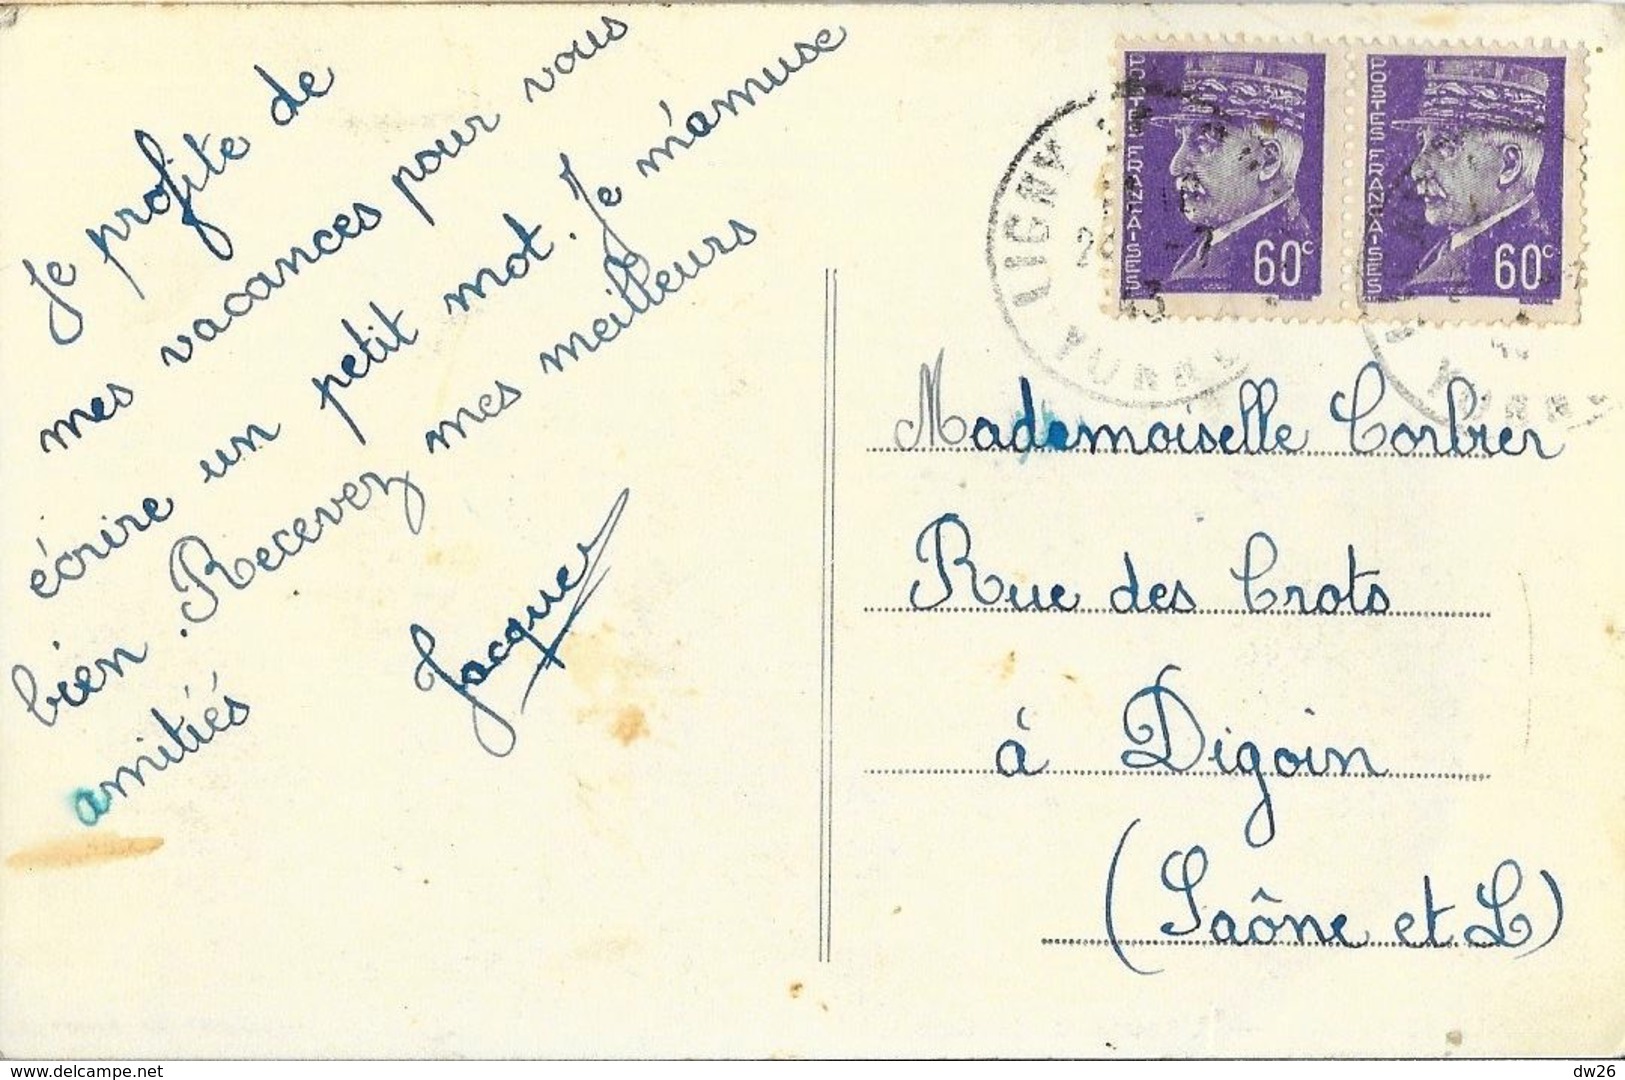 Je profite de
mes vacances pour vous
écrire un petit mot. Je m'amuse
bien. Recevez mes meilleurs
amitiés
Jacques
POSTES FRANÇAISES
60c
POSTES FRANÇAISES
60c
LIGNY
-7
43
YONNE
YONNE
Mademoiselle Corbier
Rue des Crots
à Digoin
(Saône et L)
dw26